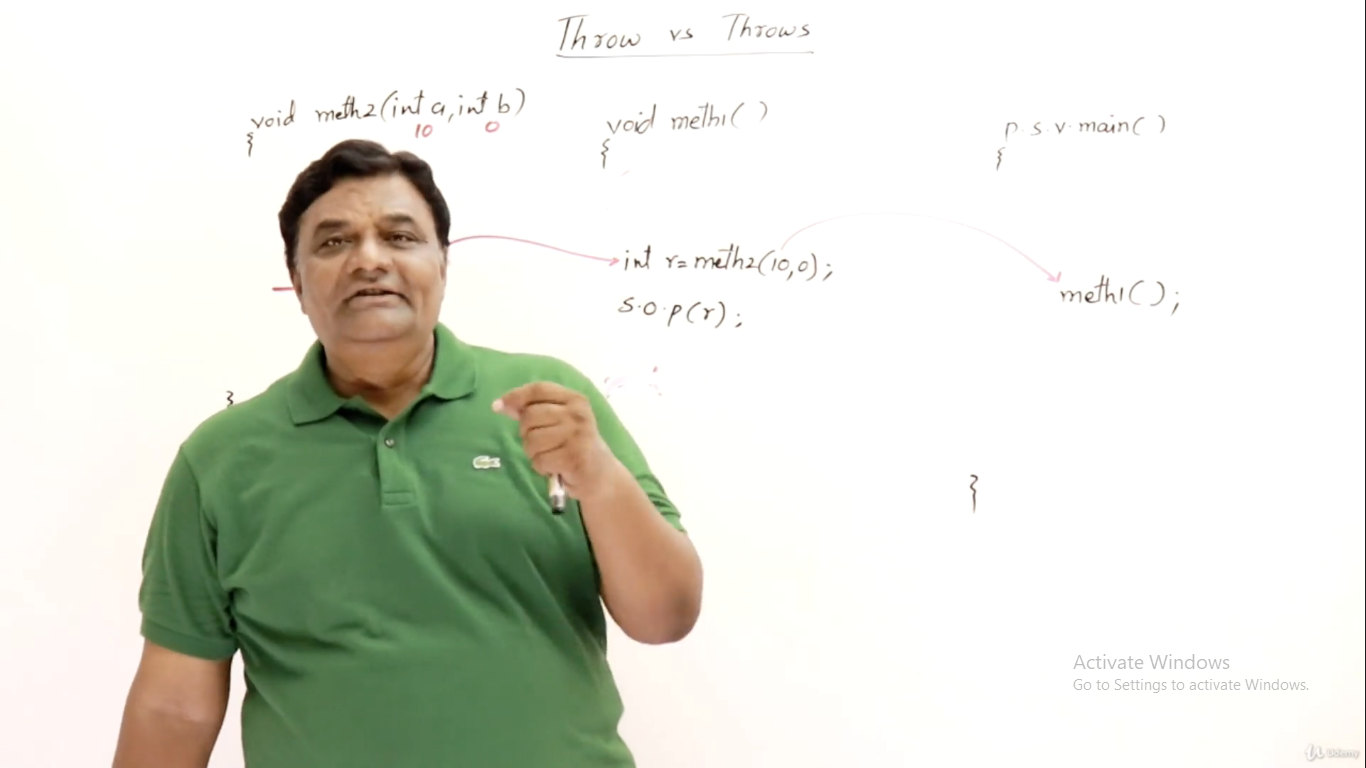 Throw vs Throws
void meth2(int a, int b)
10 0
{
}
void meth1( )
{
int r= meth2(10,0);
S.O.p(r);
p.s.v.main( )
{
meth1( );
}
Activate Windows
Go to Settings to activate Windows.
Udemy